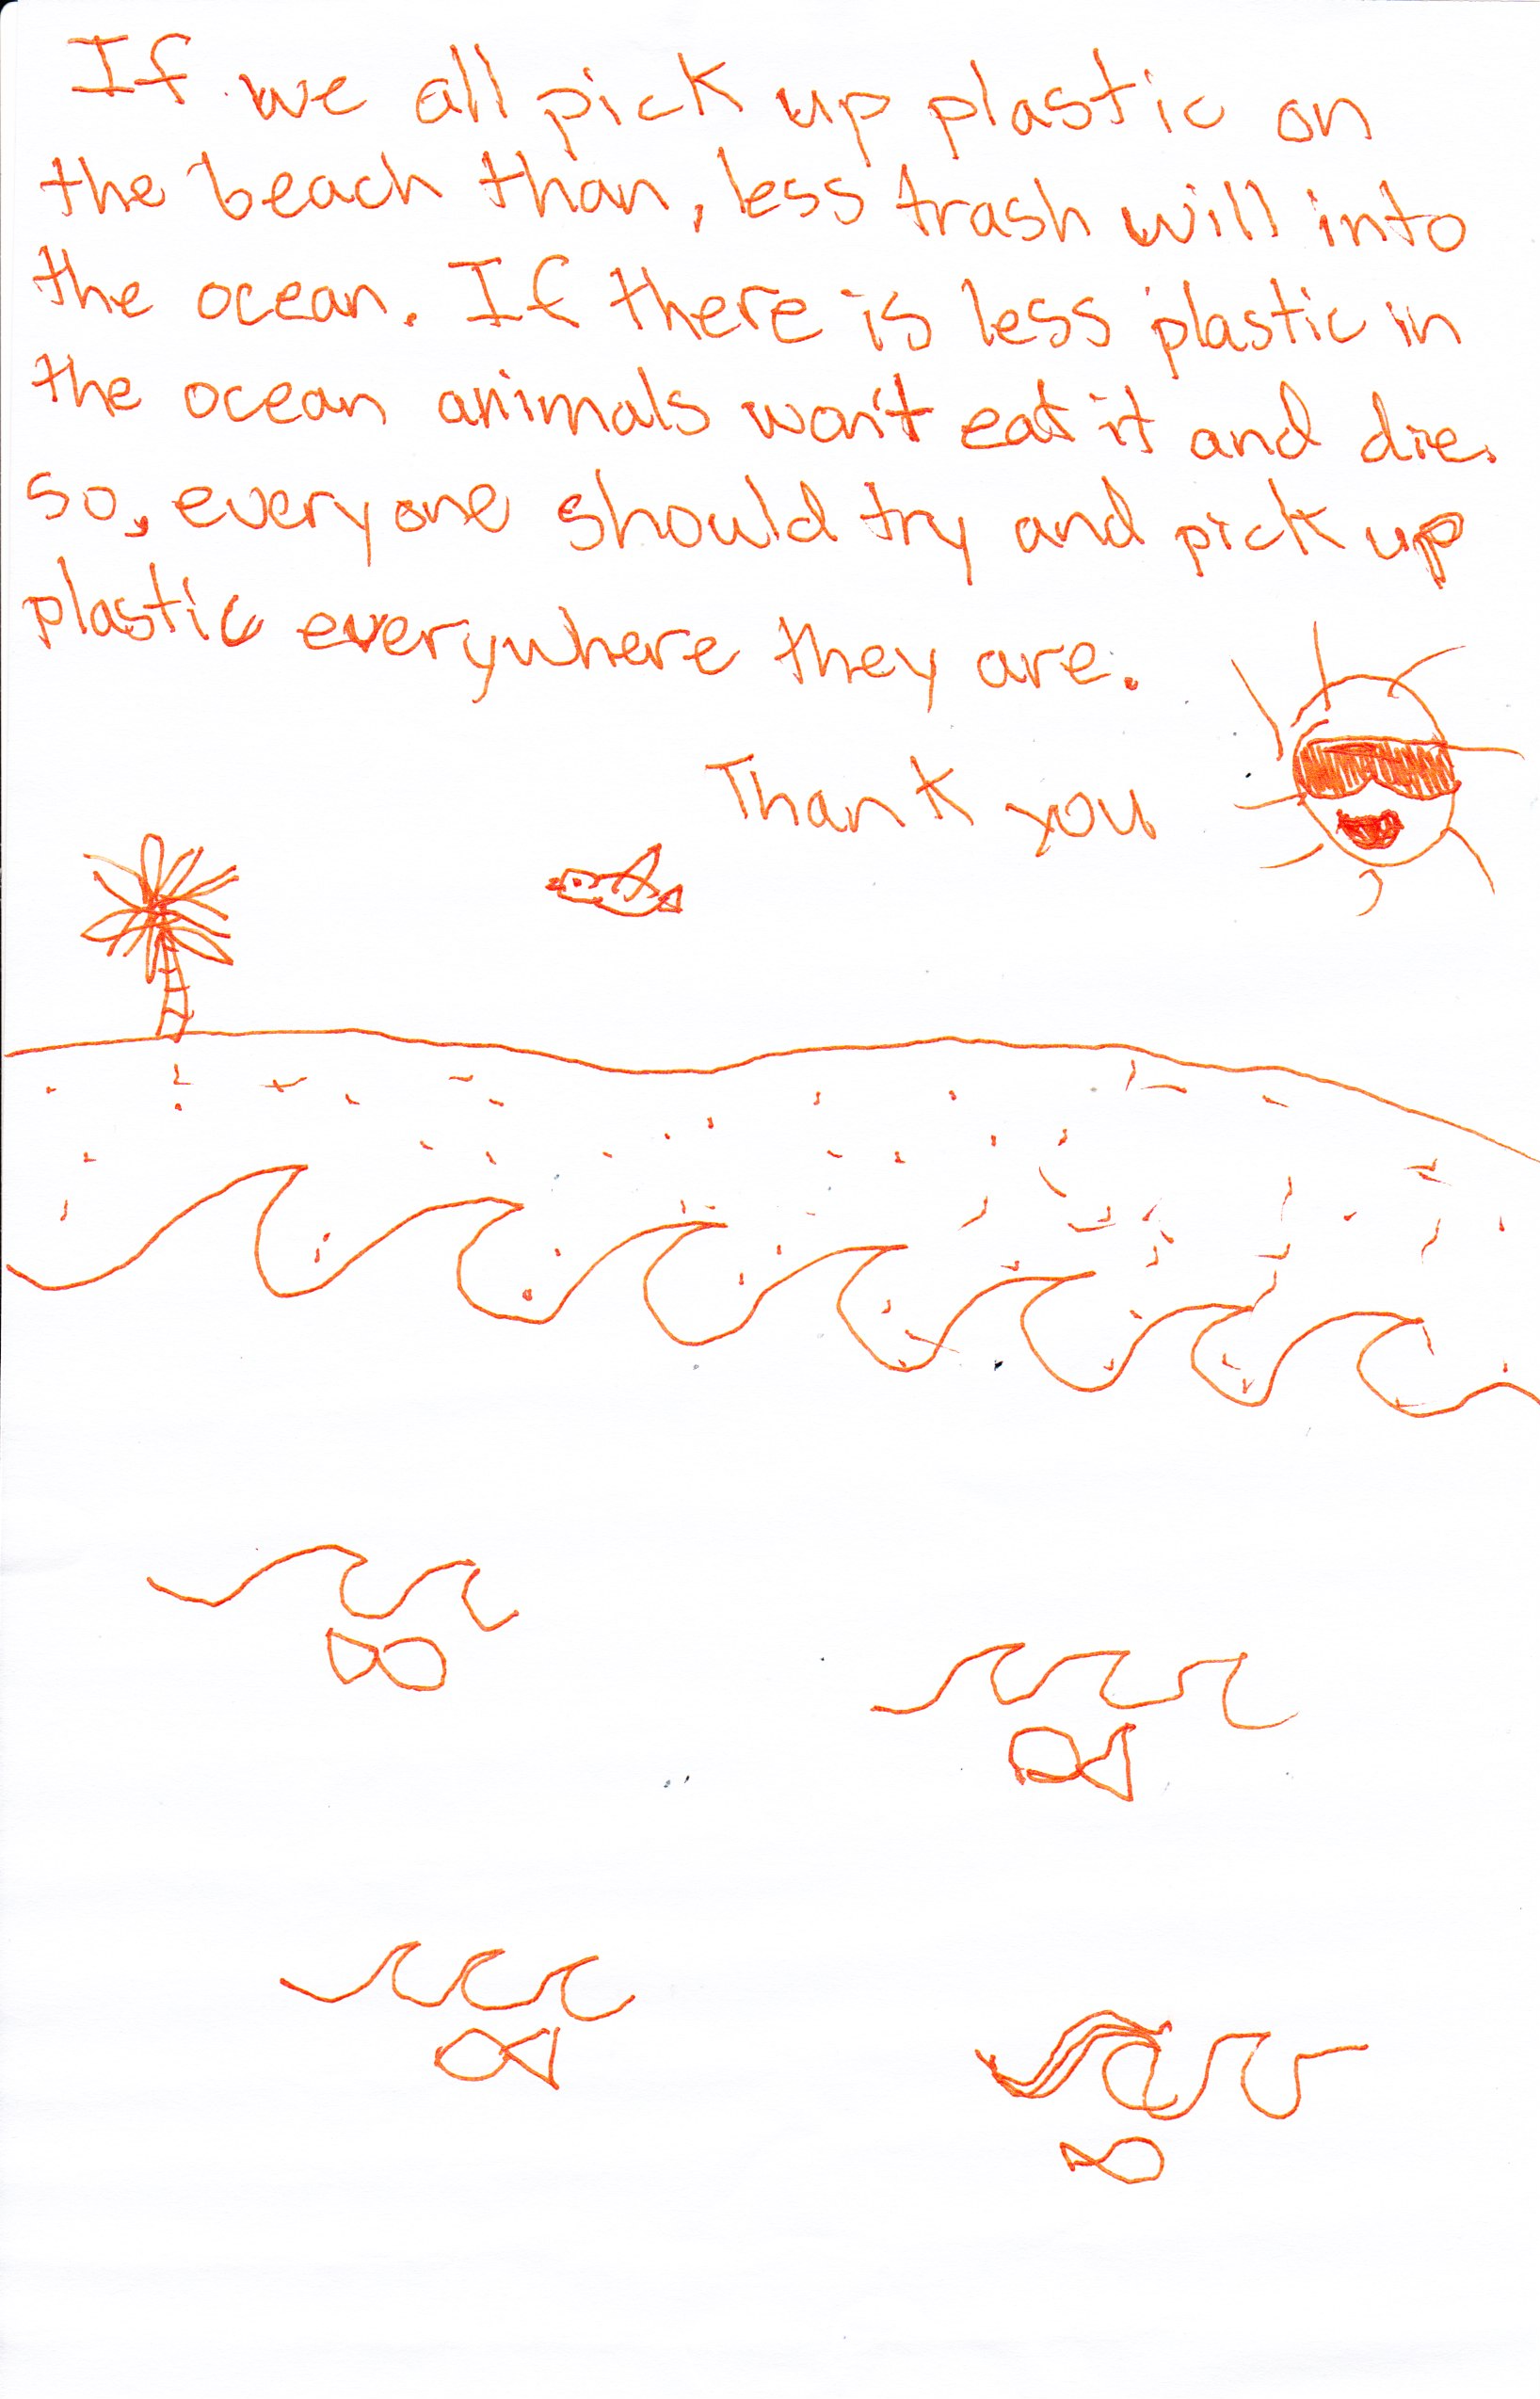 If we all pick up plastic on
the beach than, less trash will into
the ocean. If there is less plastic in
the ocean animals won't eat it and die.
so, everyone should try and pick up
plastic everywhere they are.
Thank you